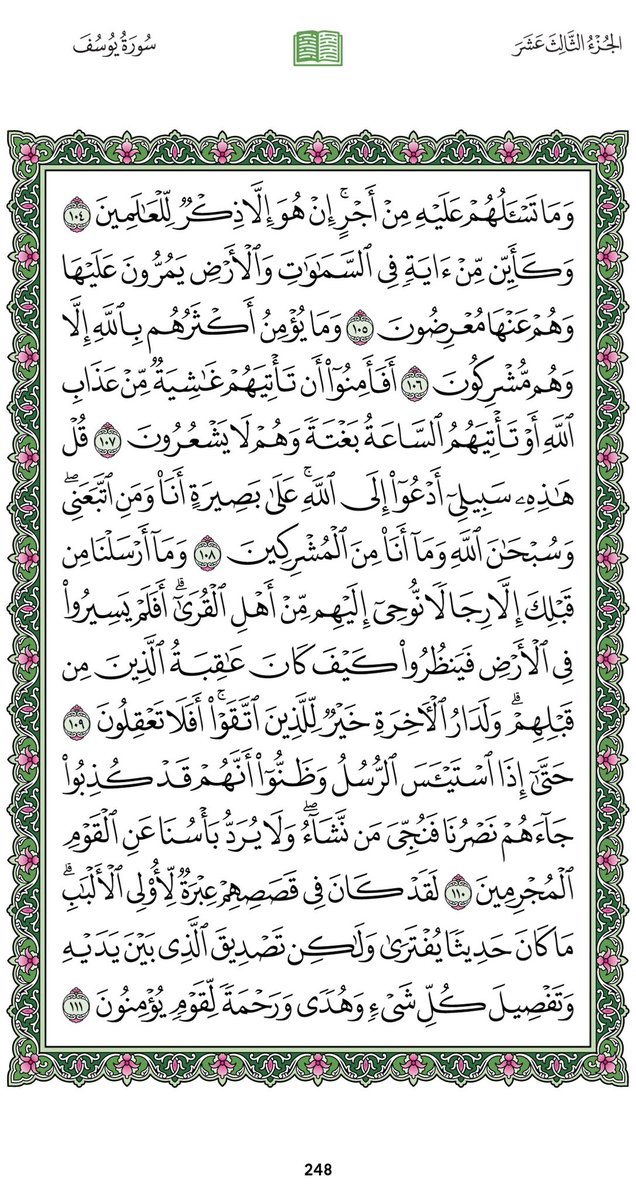 الجُزْءُ الثَّالِثَ عَشَرَ
سُورَةُ يُوسُفَ
وَمَا تَسْـَٔلُهُمْ عَلَيْهِ مِنْ أَجْرٍۚ إِنْ هُوَ إِلَّا ذِكْرٞ لِّلْعَٰلَمِينَ ١٠٤
وَكَأَيِّن مِّنْ ءَايَةٖ فِي ٱلسَّمَٰوَٰتِ وَٱلْأَرْضِ يَمُرُّونَ عَلَيْهَا
وَهُمْ عَنْهَا مُعْرِضُونَ ١٠٥ وَمَا يُؤْمِنُ أَكْثَرُهُم بِٱللَّهِ إِلَّا
وَهُم مُّشْرِكُونَ ١٠٦ أَفَأَمِنُوٓا۟ أَن تَأْتِيَهُمْ غَٰشِيَةٞ مِّنْ عَذَابِ
ٱللَّهِ أَوْ تَأْتِيَهُمُ ٱلسَّاعَةُ بَغْتَةٗ وَهُمْ لَا يَشْعُرُونَ ١٠٧ قُلْ
هَٰذِهِۦ سَبِيلِيٓ أَدْعُوٓا۟ إِلَى ٱللَّهِۚ عَلَىٰ بَصِيرَةٍ أَنَا۠ وَمَنِ ٱتَّبَعَنِيۖ
وَسُبْحَٰنَ ٱللَّهِ وَمَآ أَنَا۠ مِنَ ٱلْمُشْرِكِينَ ١٠٨ وَمَآ أَرْسَلْنَا مِن
قَبْلِكَ إِلَّا رِجَالٗا نُّوحِيٓ إِلَيْهِم مِّنْ أَهْلِ ٱلْقُرَىٰٓۗ أَفَلَمْ يَسِيرُوا۟
فِي ٱلْأَرْضِ فَيَنظُرُوا۟ كَيْفَ كَانَ عَٰقِبَةُ ٱلَّذِينَ مِن
قَبْلِهِمْۗ وَلَدَارُ ٱلْأٓخِرَةِ خَيْرٞ لِّلَّذِينَ ٱتَّقَوْا۟ۚ أَفَلَا تَعْقِلُونَ ١٠٩
حَتَّىٰٓ إِذَا ٱسْتَيْـَٔسَ ٱلرُّسُلُ وَظَنُّوٓا۟ أَنَّهُمْ قَدْ كُذِبُوا۟
جَآءَهُمْ نَصْرُنَا فَنُجِّيَ مَن نَّشَآءُۖ وَلَا يُرَدُّ بَأْسُنَا عَنِ ٱلْقَوْمِ
ٱلْمُجْرِمِينَ ١١٠ لَقَدْ كَانَ فِي قَصَصِهِمْ عِبْرَةٞ لِّأُو۟لِي ٱلْأَلْبَٰبِۗ
مَا كَانَ حَدِيثٗا يُفْتَرَىٰ وَلَٰكِن تَصْدِيقَ ٱلَّذِي بَيْنَ يَدَيْهِ
وَتَفْصِيلَ كُلِّ شَيْءٖ وَهُدٗى وَرَحْمَةٗ لِّقَوْمٖ يُؤْمِنُونَ ١١١
248